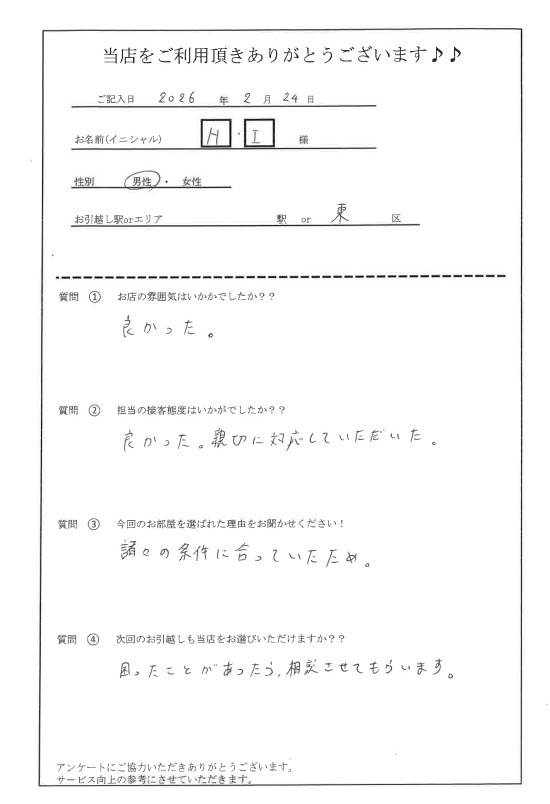 当店をご利用頂きありがとうございます♪♪
ご記入日 2026 年 2 月 24 日
お名前(イニシャル) H ・ I 様
性別 男性 ・ 女性
お引越し駅orエリア 駅 or 東 区
質問 ① お店の雰囲気はいかかでしたか？？
良かった。
質問 ② 担当の接客態度はいかがでしたか？？
良かった。親切に対応していただいた。
質問 ③ 今回のお部屋を選ばれた理由をお聞かせください！
諸々の条件に合っていたため。
質問 ④ 次回のお引越しも当店をお選びいただけますか？？
困ったことがあったら、相談させてもらいます。
アンケートにご協力いただきありがとうございます。
サービス向上の参考にさせていただきます。